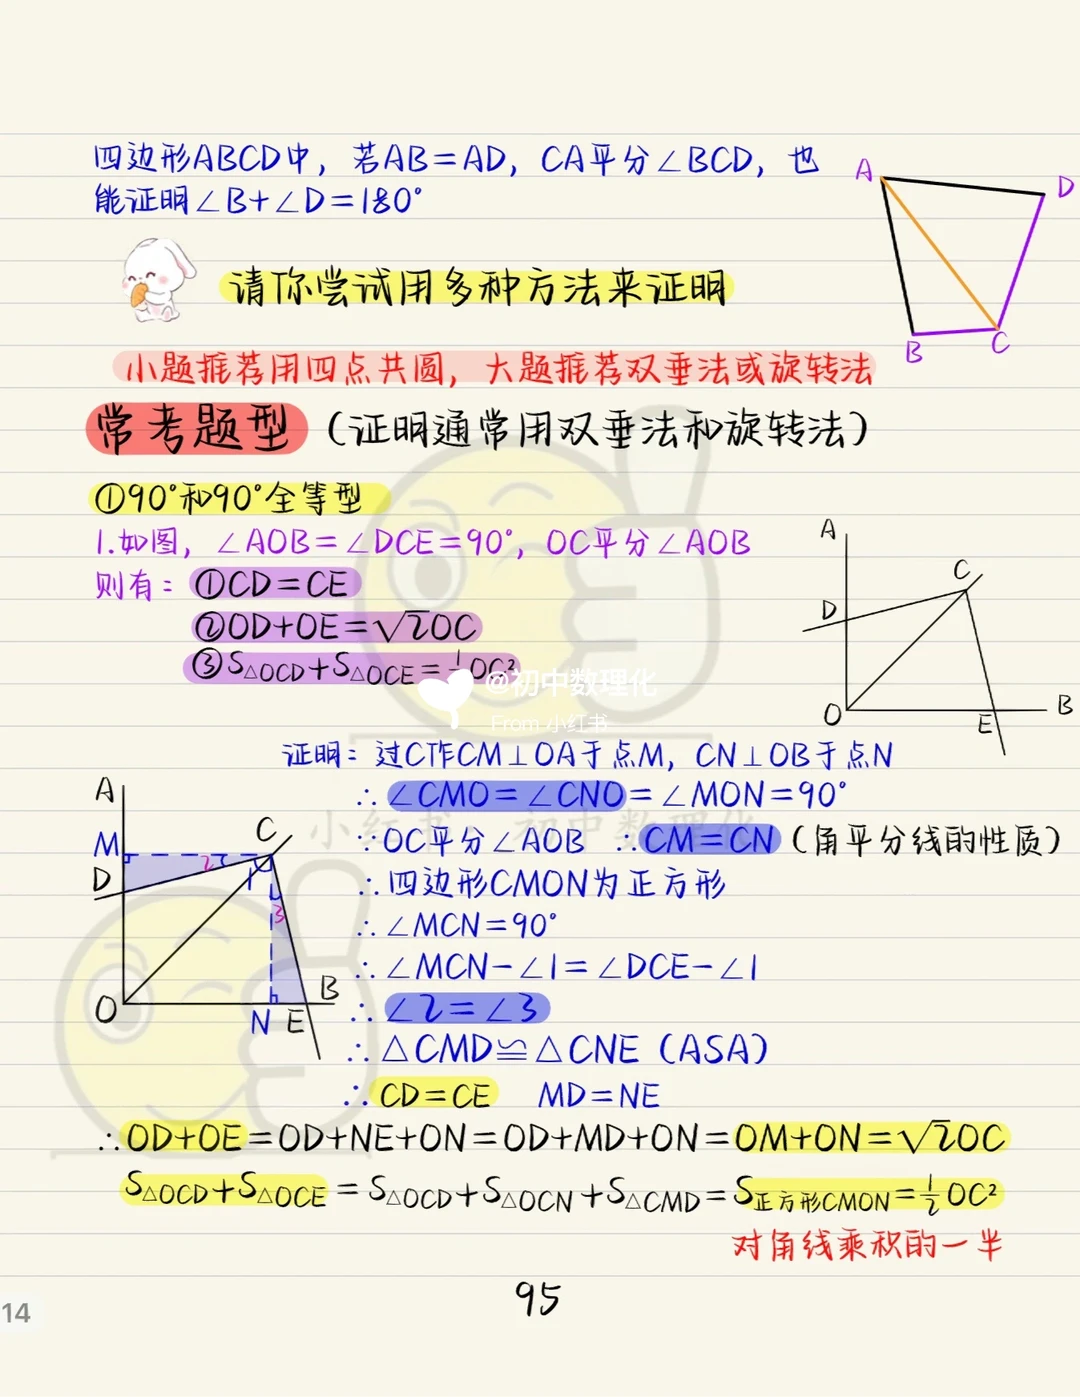 四边形ABCD中，若AB=AD，CA平分∠BCD，也
能证明∠B+∠D=180°
A
D
B
C
请你尝试用多种方法来证明
小题推荐用四点共圆，大题推荐双垂法或旋转法
常考题型（证明通常用双垂法和旋转法）
①90°和90°全等型
1.如图，∠AOB=∠DCE=90°，OC平分∠AOB
则有：①CD=CE
②OD+OE=√2OC
③S△OCD+S△OCE=½OC²
A
C
D
O
E
B
@初中数理化
From 小红书
证明：过C作CM⊥OA于点M，CN⊥OB于点N
∴∠CMO=∠CNO=∠MON=90°
小红书：初中数理化
∵OC平分∠AOB ∴CM=CN（角平分线的性质）
∴四边形CMON为正方形
∴∠MCN=90°
∴∠MCN-∠1=∠DCE-∠1
∴∠2=∠3
∴△CMD≌△CNE（ASA）
∴CD=CE MD=NE
A
M
C
D
2
1
3
O
N
E
B
∴OD+OE=OD+NE+ON=OD+MD+ON=OM+ON=√2OC
S△OCD+S△OCE=S△OCD+S△OCN+S△CMD=S正方形CMON=½OC²
对角线乘积的一半
95
14